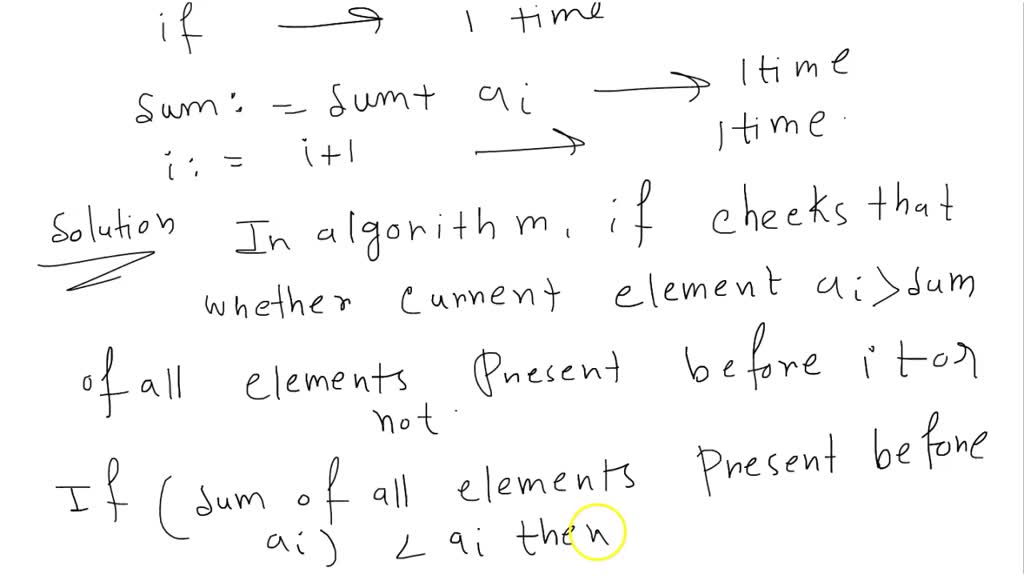 if → 1 time
Sum := Sum + ai → 1 time
i := i+1 → 1 time.
Solution In algorithm, if cheeks that
whether current element ai > Sum
of all elements Present before it or
not.
If (Sum of all elements Present before
ai) < ai then